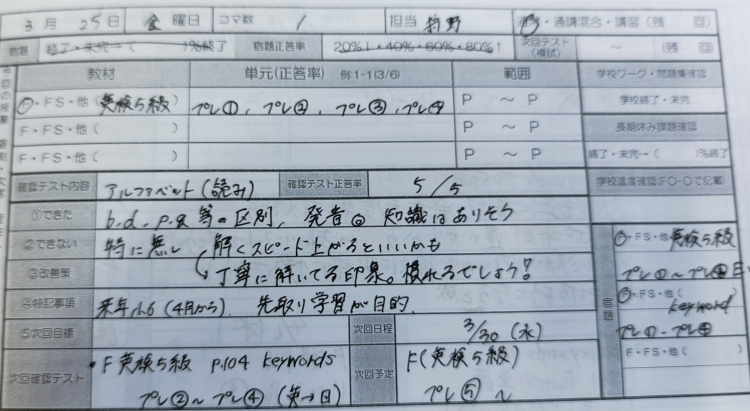 3月25日 金曜日 コマ数 1 担当 狩野 通講・通講混合・講習(残 回)
宿題 終了・未完→( )%終了 宿題正答率 20%↓・40%・60%・80%↑ 次回テスト(模試) ~ (残 回)
教材 単元(正答率) 例:1-1(3/6) 範囲 学校ワーク・問題集確認
F・FS・他(英検5級) プレ①、プレ②、プレ③、プレ④ P ~ P 学校終了・未完
F・FS・他( ) P ~ P 長期休み課題確認
F・FS・他( ) P ~ P 終了・未完→( )%終了
確認テスト内容 アルファベット(読み) 確認テスト正答率 5/5 学校進度確認:F〇-〇で記載
①できた b.d.p.q等の区別、発音◎ 知識はありそう
②できない 特に無し 解くスピード上がるといいかも
③改善策 丁寧に解いてる印象。慣れるでしょう!
④特記事項 来年小6(4月から)、先取り学習が目的。
⑤次回目標 次回日程 3/30(水)
次回確認テスト ・F英検5級 p.104 keywords
プレ②~プレ④(英→日)
次回予定 F(英検5級)
プレ⑤~
宿題
F・FS・他 英検5級
プレ①~プレ④
F・FS・他( keyword
プレ①-プレ④
F・FS・他( )